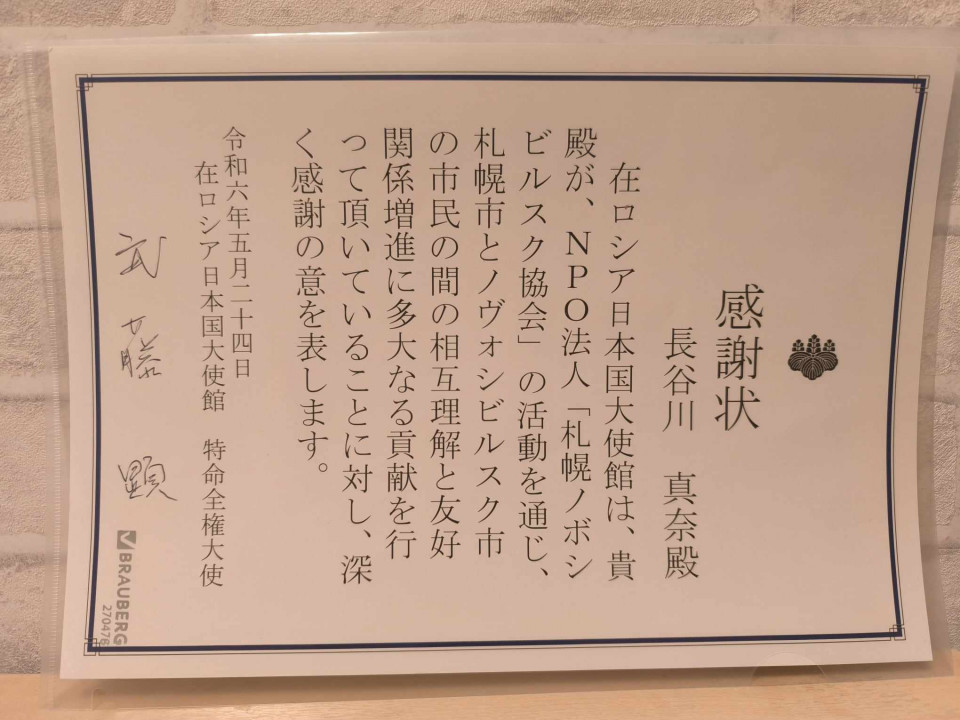 感謝状
長谷川　真奈殿
在ロシア日本国大使館は、貴
殿が、NPO法人「札幌ノボシ
ビルスク協会」の活動を通じ、
札幌市とノヴォシビルスク市
の市民の間の相互理解と友好
関係増進に多大なる貢献を行
って頂いていることに対し、深
く感謝の意を表します。
令和六年五月二十四日
在ロシア日本国大使館　特命全権大使
武藤　顕
BRAUBERG
270476